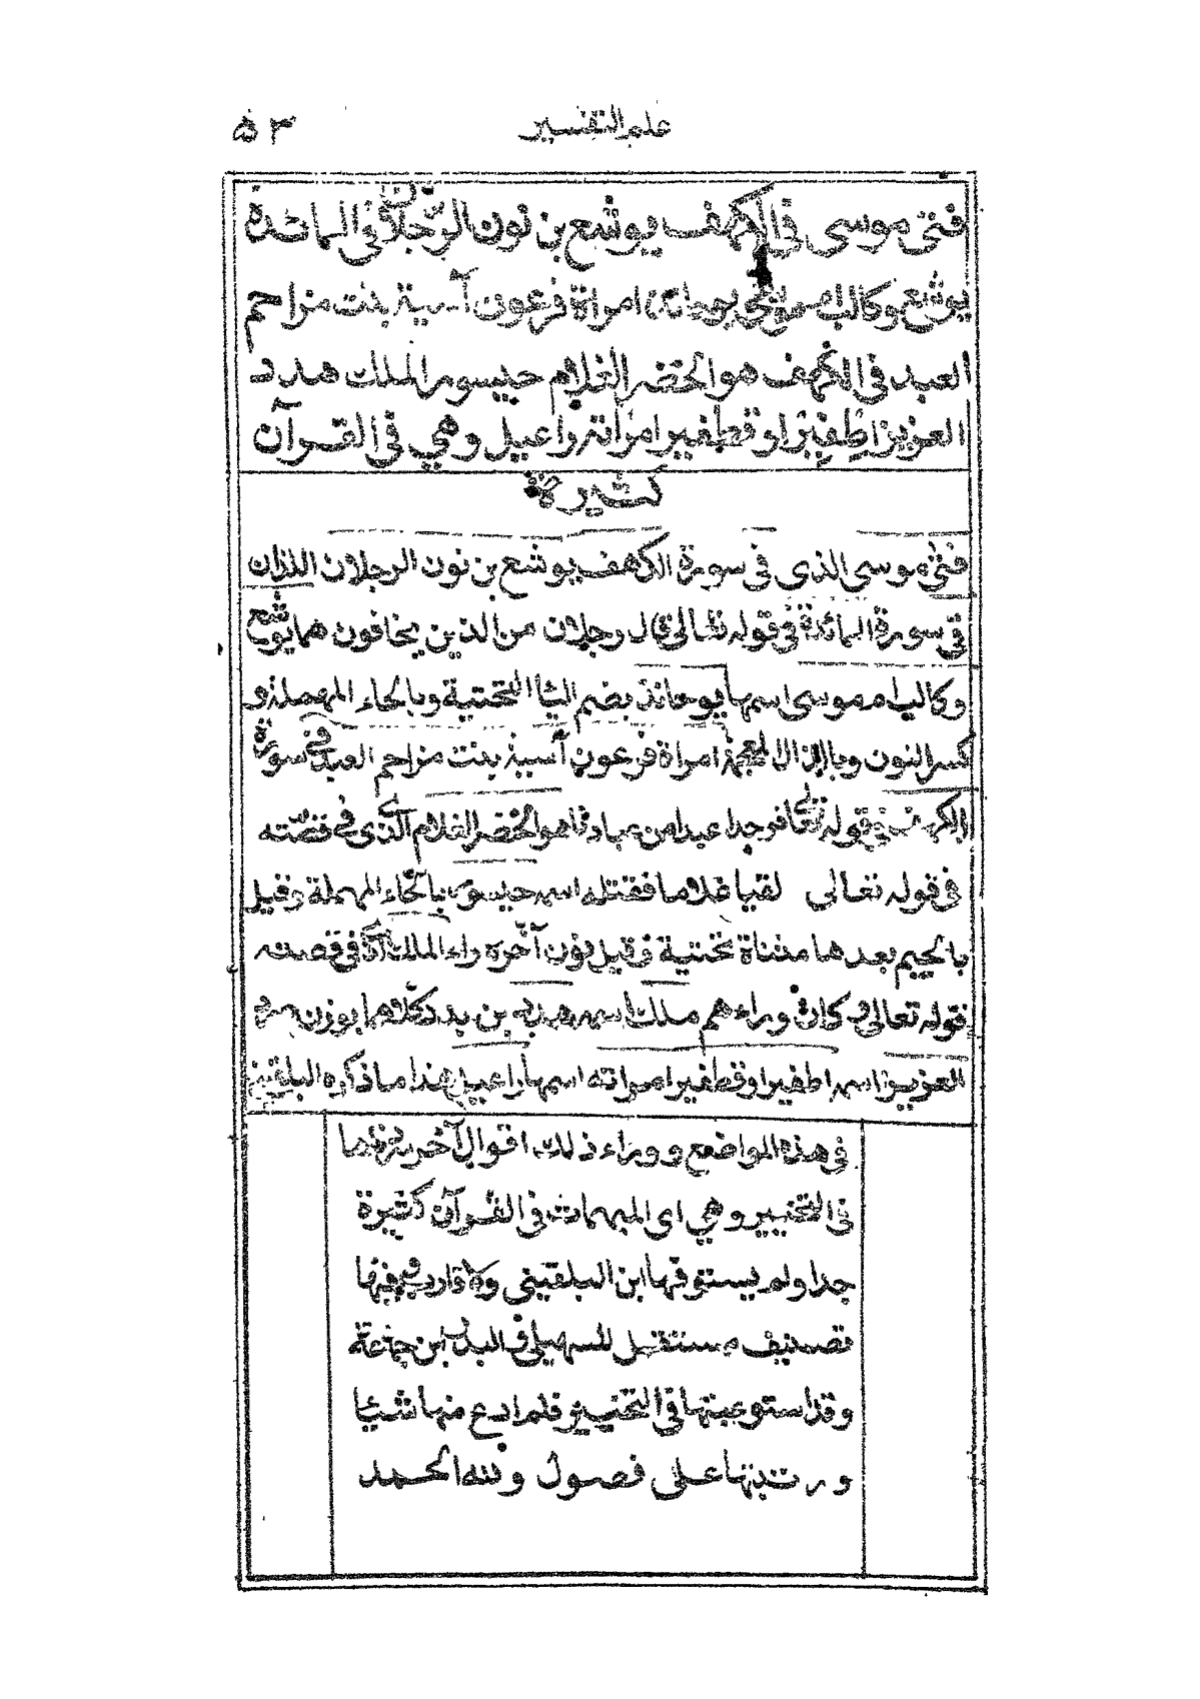 علم التفسير
٥٣
فتى موسى فى الكهف يوشع بن نون الرجلان فى المائدة
يوشع وكالب ام موسى يوحانذ امراة فرعون آسية بنت مزاحم
العبد فى الكهف هو الخضر الغلام حيسور الملك هدد
العزيز اطفير او قطفير امرأته راعيل وهي فى القرآن
كثيرة
فتى موسى الذى فى سورة الكهف يوشع بن نون الرجلان اللذان
فى سورة المائدة فى قوله تعالى قال رجلان من الذين يخافون هما يوشع
وكالب ام موسى اسمها يوحانذ بضم اليا التحتية وبالحاء المهملة و
كسر النون وبالذال المعجمة امراة فرعون آسية بنت مزاحم العبد فى سورة
الكهف فى قوله تعالى فوجدا عبدا من عبادنا هو الخضر الغلام الذى فى قصته
فى قوله تعالى لقيا غلاما فقتله اسمه حيسور بالحاء المهملة وقيل
بالجيم بعدها مثناة تحتية وقيل نون آخره راء الملك الذى فى قصته
قوله تعالى وكان وراءهم ملك اسمه هدد بن بدد كلاهما بوزن صرد
العزيز اسمه اطفير او قطفير امراته اسمها راعيل هذا ما ذكره البلقينى
فى هذه المواضع ووراء ذلك اقوال آخر بيناها
فى التحبير وهي اى المبهمات فى القرآن كثيرة
جدا ولم يستوفها ابن البلقينى وكا قارب وفيها
تصنيف مستقل للسهيلى والبدر ابن جماعة
وقد استوعبتها فى التحبير فلم ادع منها شيئا
ورتبتها على فصول ولله الحمد